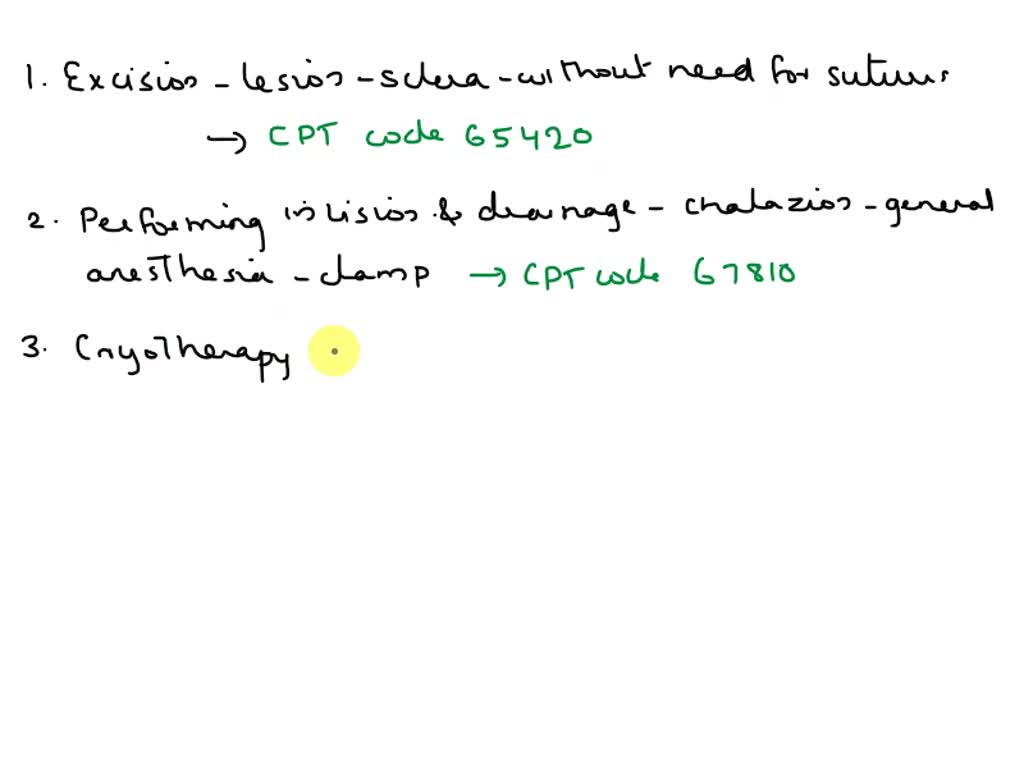 1. Excision - lesion - sclera - without need for suture.
→ CPT code 65420
2. Performing incision & drainage - chalazion - general
anesthesia - clamp → CPT code 67810
3. Cryotherapy